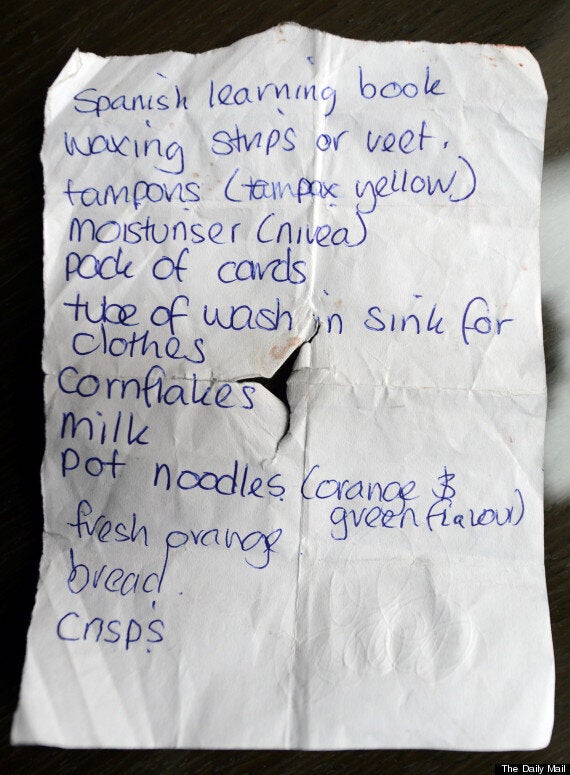 Spanish learning book
waxing strips or veet.
tampons (tampax yellow)
moisturiser (nivea)
pack of cards
tube of wash in sink for
clothes
Cornflakes
milk
pot noodles (orange $
green flavour)
fresh orange
bread.
crisps
The Daily Mail